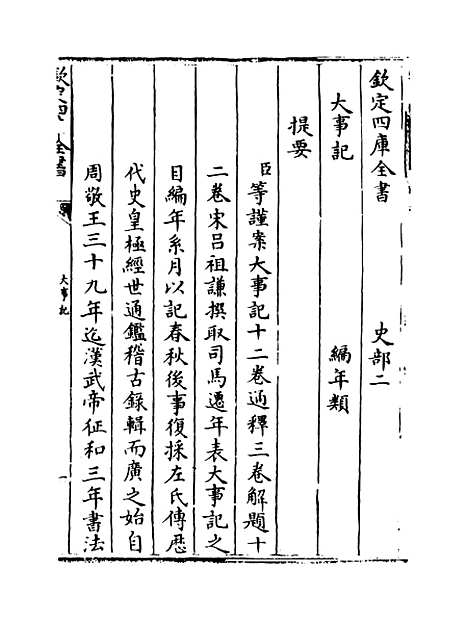 欽定四庫全書 史部二
大事記 編年類
提要
臣等謹案大事記十二卷通釋三卷解題十
二卷宋呂祖謙撰取司馬遷年表大事記之
目編年系月以記春秋後事復採左氏傳歴
代史皇極經世通鑑稽古錄輯而廣之始自
周敬王三十九年迄漢武帝征和三年書法
大事記
一